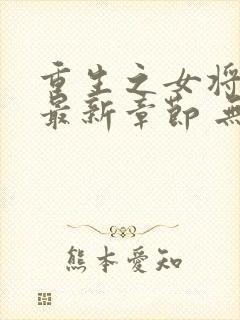 重生之女将
最新章節 無
熊本愛知